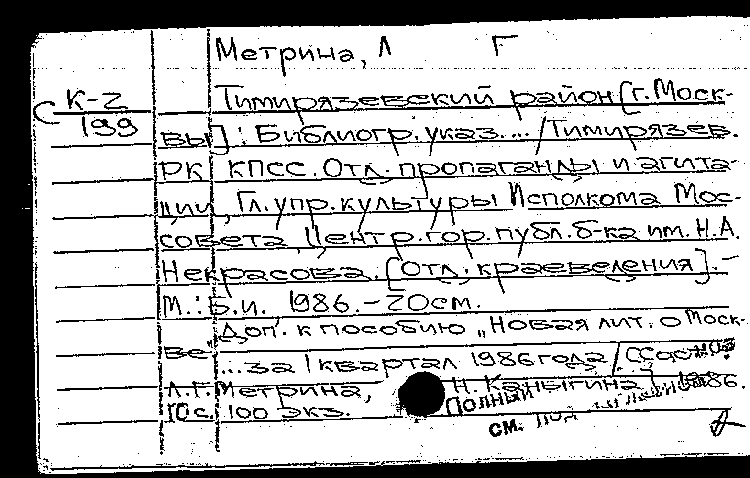 Метрина, Л Г
К-2 Тимирязевский район [г. Моск-
199 вы]: Библиогр. указ... / Тимирязев.
РК КПСС. Отд. пропаганды и агита-
ции, Гл. упр. культуры Исполкома Мос-
совета, Центр. гор. публ. б-ка им. Н.А.
Некрасова. [Отд. краеведения]. -
М.: Б.и., 1986. - 20 см.
Доп. к пособию „Новая лит. о Моск-
ве" ...за I квартал 1986 года /
Л.Г. Метрина, Н. Каныгина 1986.
10 с. 100 экз. Полный
см. под